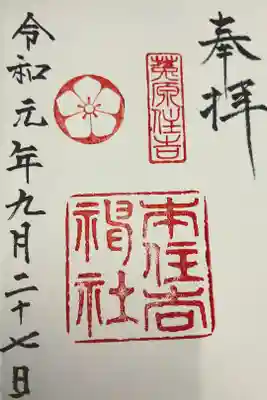 奉拝
菟原住吉
本住吉神社
令和元年九月二十七日